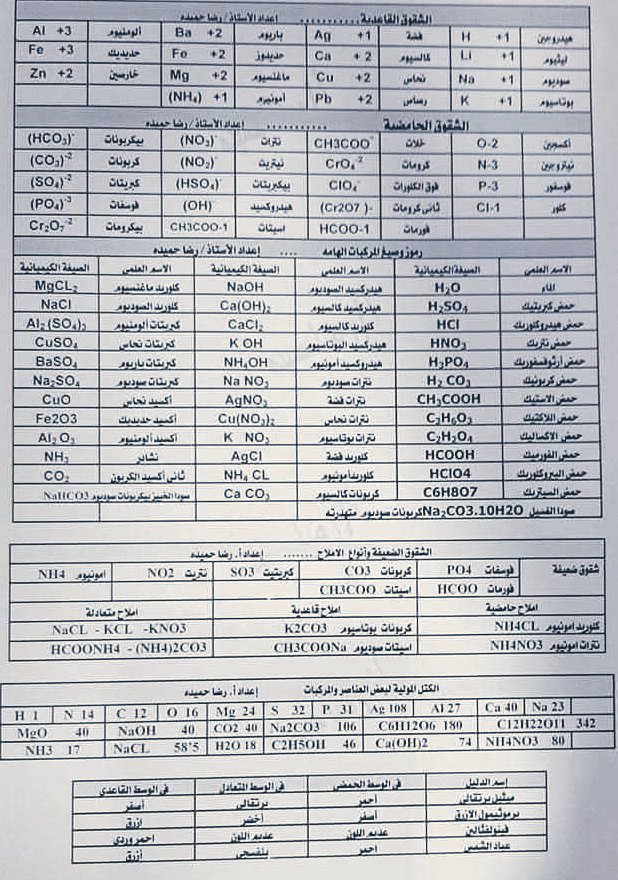 الشقوق القاعدية ........... إعداد الأستاذ/ رضا حميده
هيدروجين H +1 فضة Ag +1 باريوم Ba +2 ألومنيوم Al +3
ليثيوم Li +1 كالسيوم Ca + 2 حديدوز Fe + 2 حديديك Fe + 3
صوديوم Na +1 نحاس Cu + 2 ماغنسيوم Mg + 2 خارصين Zn +2
بوتاسيوم K +1 رصاص Pb + 2 أمونيوم (NH₄) +1
الشقوق الحامضية ........... إعداد الأستاذ/ رضا حميده
أكسجين O-2 خلات CH3COO⁻ نترات (NO₃)⁻ بيكربونات (HCO₃)⁻
نيتروجين N-3 كرومات CrO₄⁻² نيتريت (NO₂)⁻ كربونات (CO₃)⁻²
فوسفور P-3 فوق الكلورات ClO₄⁻ بيكبريتات (HSO₄)⁻ كبريتات (SO₄)⁻²
كلور Cl-1 ثانى كرومات (Cr2O7 )- هيدروكسيد (OH)⁻ فوسفات (PO₄)⁻³
فورمات HCOO-1 اسيتات CH3COO-1 بيكرومات Cr₂O₇⁻²
رموز وصيغ المركبات الهامه .... إعداد الأستاذ/ رضا حميده
الاسم العلمى الصيغة الكيميائية الاسم العلمى الصيغة الكيميائية الاسم العلمى الصيغة الكيميائية
الماء H₂O هيدركسيد الصوديوم NaOH كلوريد ماغنسيوم MgCL₂
حمض كبريتيك H₂SO₄ هيدركسيد كالسيوم Ca(OH)₂ كلوريد الصوديوم NaCl
حمض هيدروكلوريك HCl كلوريد كالسيوم CaCl₂ كبريتات ألومنيوم Al₂ (SO₄)₃
حمض نتريك HNO₃ هيدركسيد البوتاسيوم K OH كبريتات نحاس CuSO₄
حمض أرثوفسفوريك H₃PO₄ هيدروكسيد أمونيوم NH₄OH كبريتات باريوم BaSO₄
حمض كربونيك H₂ CO₃ نترات صوديوم Na NO₃ كبريتات صوديوم Na₂SO₄
حمض الاستيك CH₃COOH نترات فضة AgNO₃ أكسيد نحاس CuO
حمض اللاكتيك C₃H₆O₃ نترات نحاس Cu(NO₃)₂ أكسيد حديديك Fe2O3
حمض الاكساليك C₂H₂O₄ نترات بوتاسيوم K NO₃ أكسيد ألومنيوم Al₂ O₃
حمض الفورميك HCOOH كلوريد فضة AgCl نشادر NH₃
حمض البيروكلوريك HClO4 كلوريد أمونيوم NH₄ CL ثانى أكسيد الكربون CO₂
حمض السيتريك C6H8O7 كربونات كالسيوم Ca CO₃ سودا الخبيز بيكربونات سوديوم NaHCO3
سودا الغسيل Na₂CO3.10H2O كربونات سوديوم متهدرته
الشقوق الضعيفة وأنواع الاملاح ....... إعداد أ. رضا حميده
شقوق ضعيفة فوسفات PO4 كربونات CO3 كبريتيت SO3 نتريت NO2 امونيوم NH4
فورمات HCOO اسيتات CH3COO
املاح حامضية املاح قاعدية املاح متعادلة
كلوريد امونيوم NH4CL كربونات بوتاسيوم K2CO3 NaCL - KCL -KNO3
نترات امونيوم NH4NO3 اسيتات سوديوم CH3COONa HCOONH4 - (NH4)2CO3
الكتل المولية لبعض العناصر والمركبات إعداد أ. رضا حميده
H 1 N 14 C 12 O 16 Mg 24 S 32 P 31 Ag 108 Al 27 Ca 40 Na 23
MgO 40 NaOH 40 CO2 40 Na2CO3 106 C6H12O6 180 C12H22O11 342
NH3 17 NaCL 58'5 H2O 18 C2H5OH 46 Ca(OH)2 74 NH4NO3 80
إسم الدليل فى الوسط الحمضى فى الوسط المتعادل فى الوسط القاعدى
ميثيل برتقالى أحمر برتقالى أصفر
برموثيمول الازرق أصفر أخضر ازرق
فينولفثالين عديم اللون عديم اللون احمر وردى
عباد الشمس احمر بنفسجى أزرق